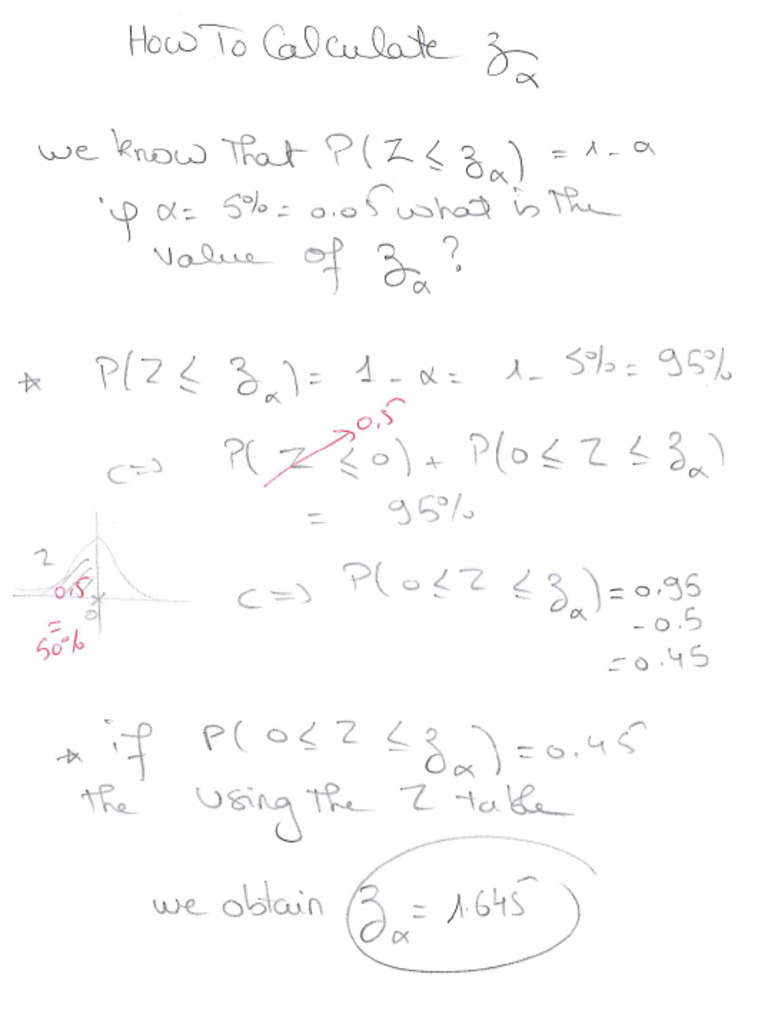 How To Calculate zα
we know that P(Z ≤ zα) = 1 - α
if α = 5% = 0.05 what is the
value of zα ?
* P(Z ≤ zα) = 1 - α = 1 - 5% = 95%
0,5
<=> P(Z ≤ 0) + P(0 ≤ Z ≤ zα)
= 95%
Z
0,5
0
=
50%
<=> P(0 ≤ Z ≤ zα) = 0.95
- 0.5
= 0.45
* if P(0 ≤ Z ≤ zα) = 0.45
the using the Z table
we obtain zα = 1.645